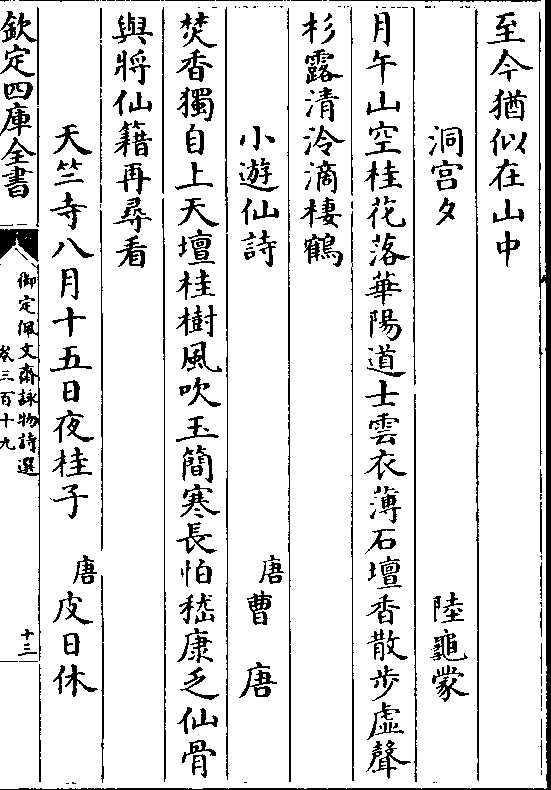 至今猶似在山中
洞宫夕 陸龜蒙
月午山空桂花落華陽道士雲衣薄石壇香散步虛聲
杉露清泠滴棲鶴
小遊仙詩 唐曹唐
焚香獨自上天壇桂樹風吹玉簡寒長怕嵇康乏仙骨
與將仙籍再尋看
天竺寺八月十五日夜桂子 唐皮日休
欽定四庫全書
御定佩文齋詠物詩選
卷三百十九
十三